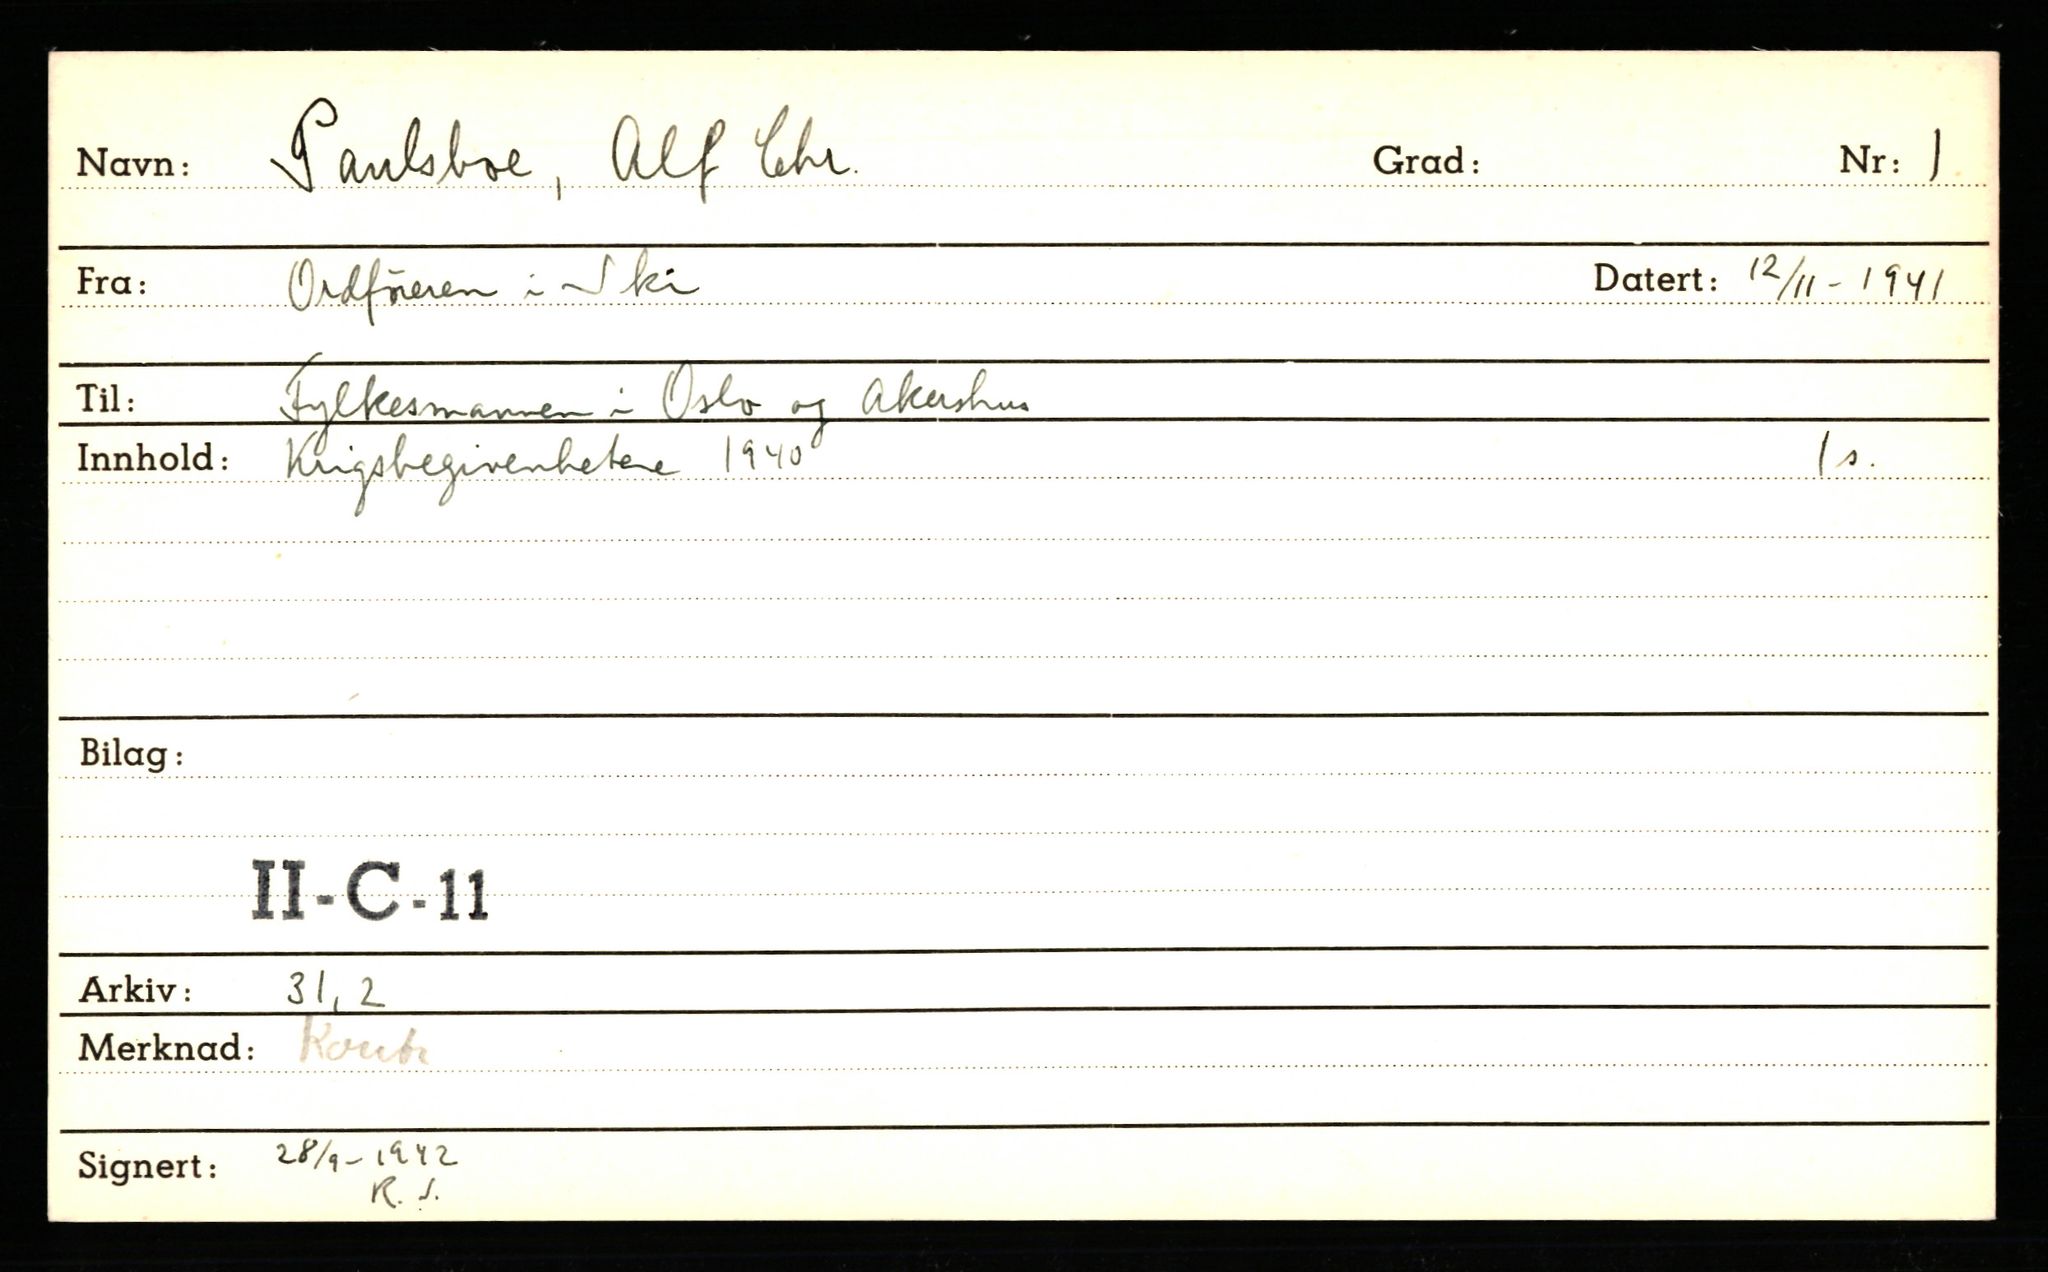 Navn: Paulsboe, Alf Chr. Grad: Nr: 1
Fra: Ordføreren i Ski Datert: 12/11-1941
Til: Fylkesmannen i Oslo og Akershus
Innhold: Krigsbegivenhetene 1940 1 s.
Bilag:
II-C-11
Arkiv: 31,2
Merknad:
Signert: 28/9-1942
R. S.